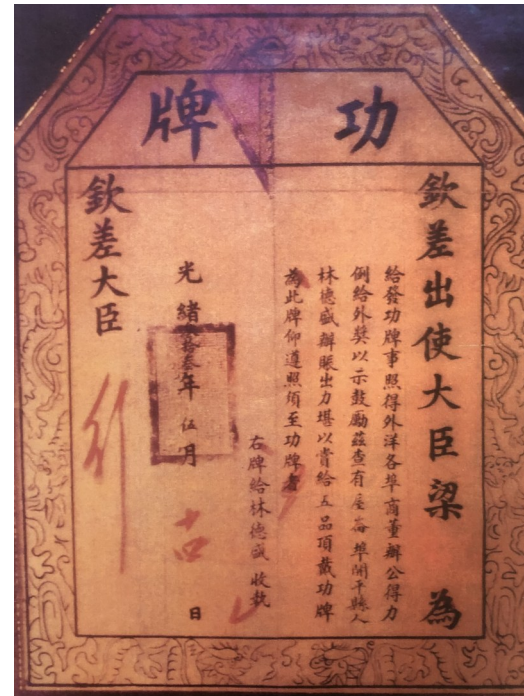 功牌
欽差出使大臣梁 為
給發功牌事照得外洋各埠商董辦公得力
例給外獎以示鼓勵茲查有屋崙埠開平縣人
林德盛辦賬出力堪以賞給五品頂戴功牌
為此牌仰遵照須至功牌者
右牌給林德盛 收執
光緒拾叁年伍月 日
欽差大臣
行